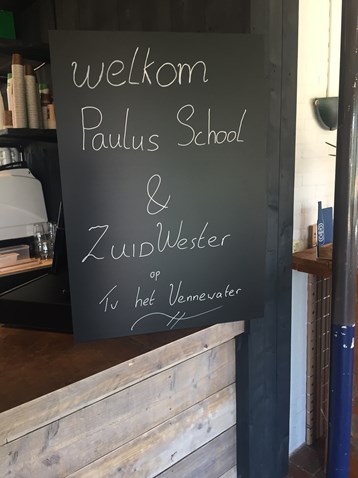 welkom
Paulus School
&
ZuidWester
op
Tv het Vennewater